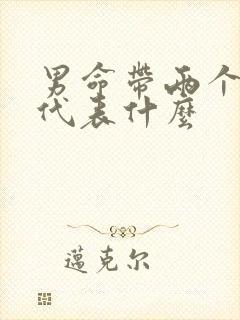 男命带两个
代表什麼
蓮克尔